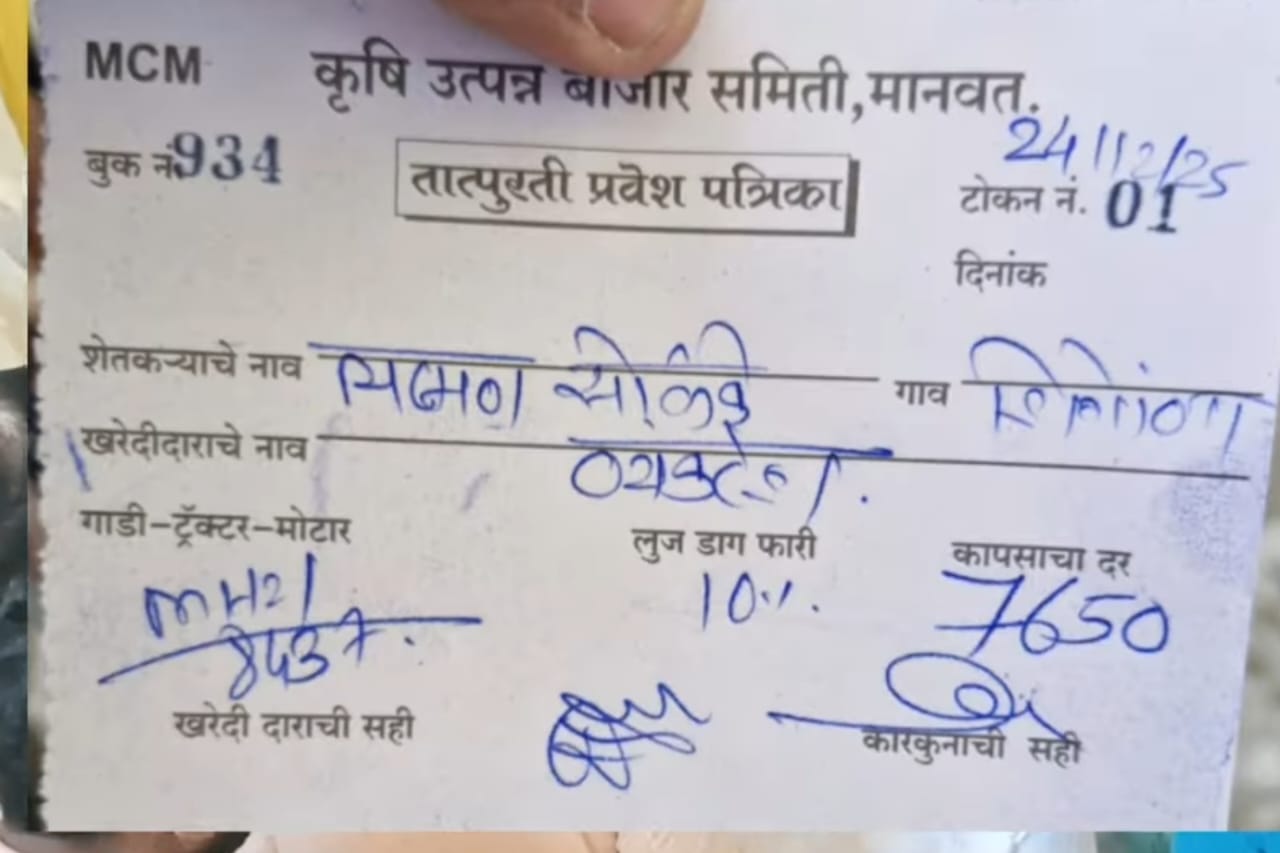 MCM कृषि उत्पन्न बाजार समिती, मानवत.
24/12/25
बुक नं. 934 तात्पुरती प्रवेश पत्रिका टोकन नं. 01
दिनांक
शेतकऱ्याचे नाव सोळंके गाव
खरेदीदाराचे नाव व्यंकटेश.
गाडी-ट्रॅक्टर-मोटार लुज डाग फारी कापसाचा दर
MH21 10%. 7650
खरेदी दाराची सही कारकुनाची सही